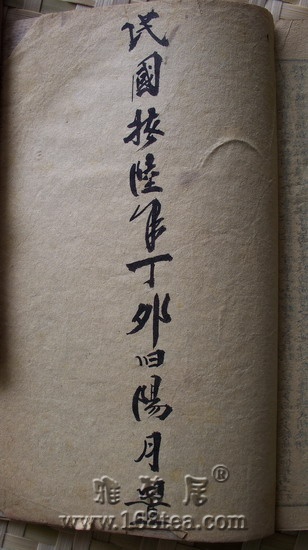 民國拾陸年丁卯旧陽月
雅茗居®
www.168tea.com